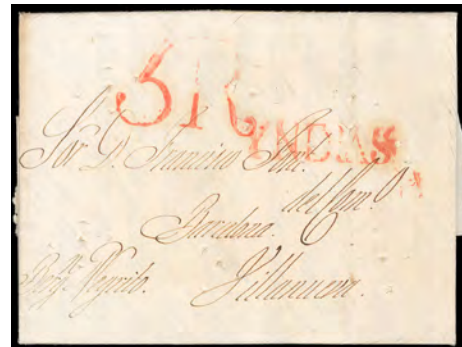 5R
YNDIAS
Sor. Dn. Francisco
del Como.
Barcelona.
Bergn. Negrito. Villanueva.